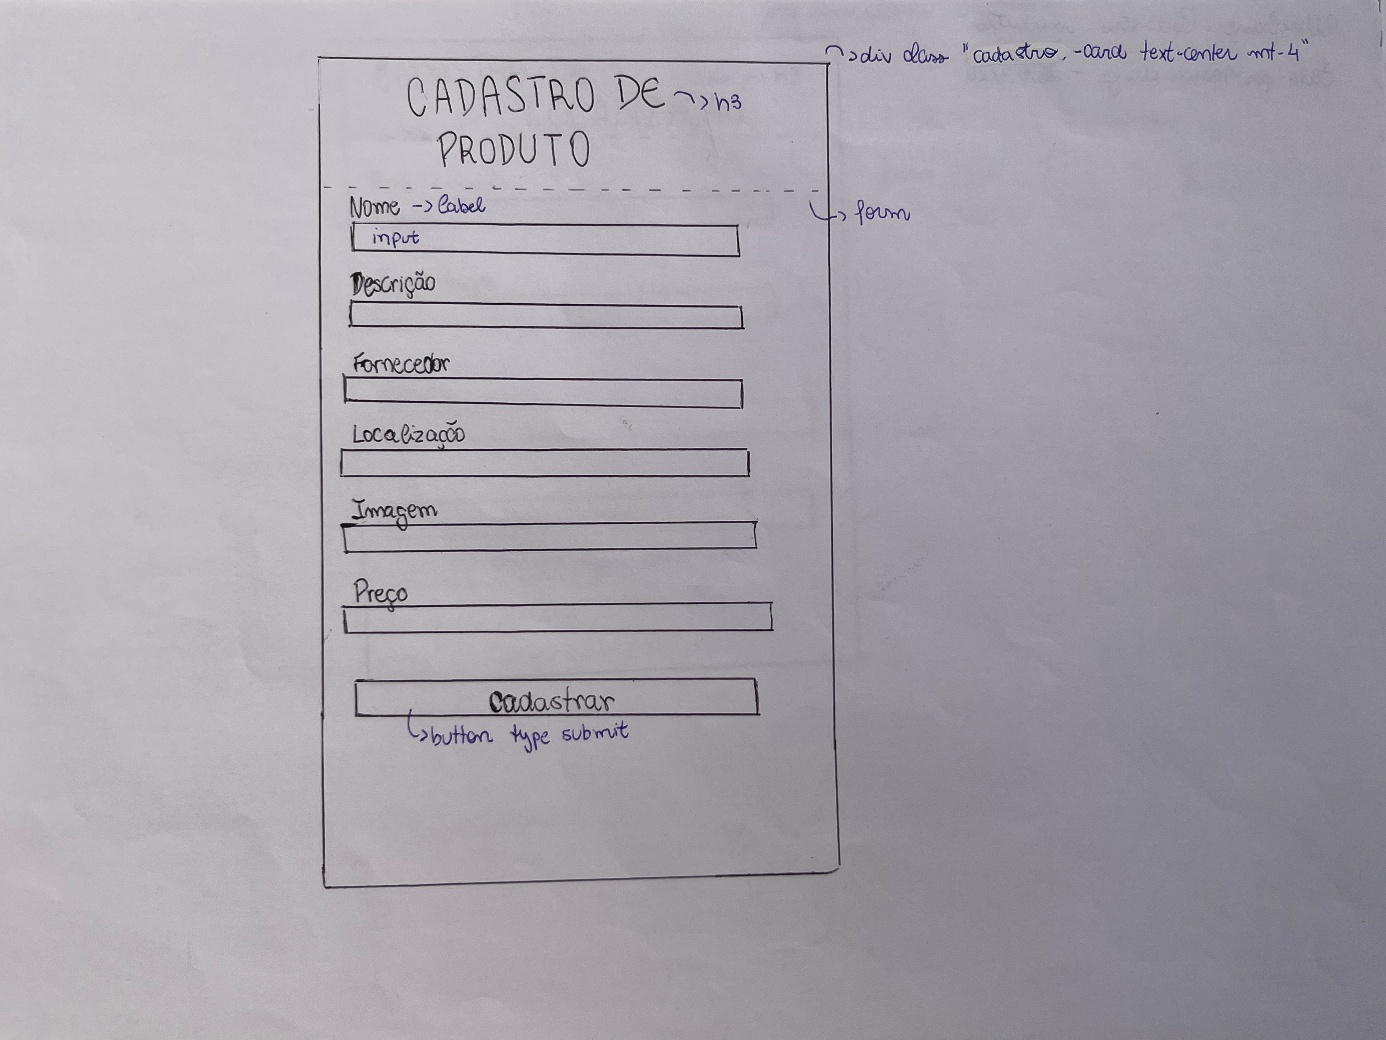 div class "cadastro, -card text-center mt-4"
CADASTRO DE -> h3
PRODUTO
Nome -> label
form
input
Descrição
Fornecedor
Localização
Imagem
Preço
cadastrar
button type submit